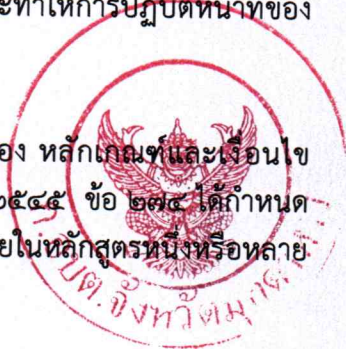 ะทำให้การปฏิบัติหน้าที่ของ
อง หลักเกณฑ์และเงื่อนไข
๒๕๔๕ ข้อ ๒๗๔ ได้กำหนด
ยในหลักสูตรหนึ่งหรือหลาย
จังหวัด